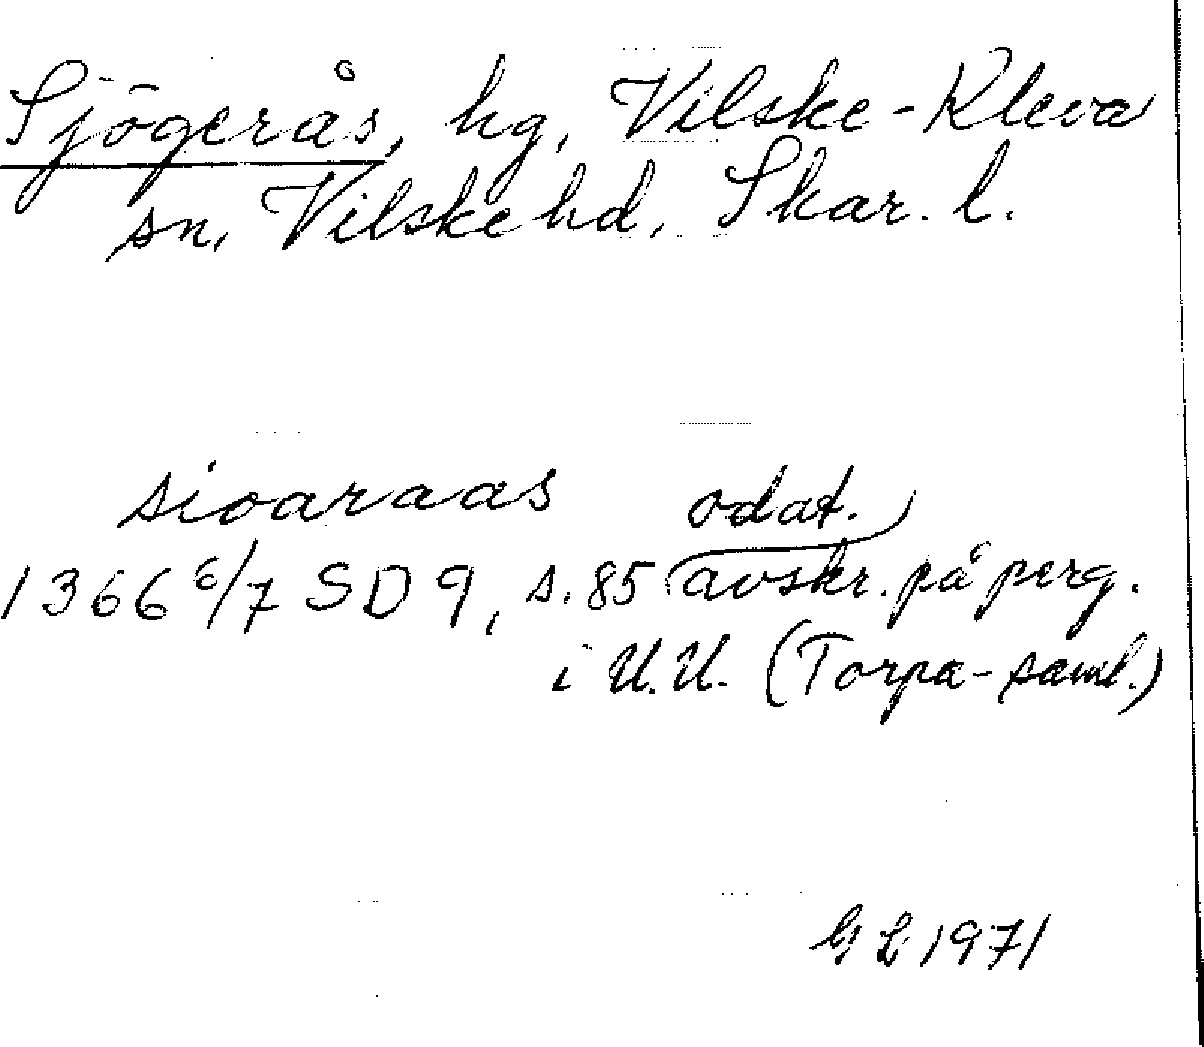 Sjögerås, hg, Vilske-Kleva
sn, Vilske hd, Skar. l.
sioaraas odat.
1366 6/7 SD 9, s. 85 avskr. på perg.
i U.U. (Torpa-saml.)
GL 1971